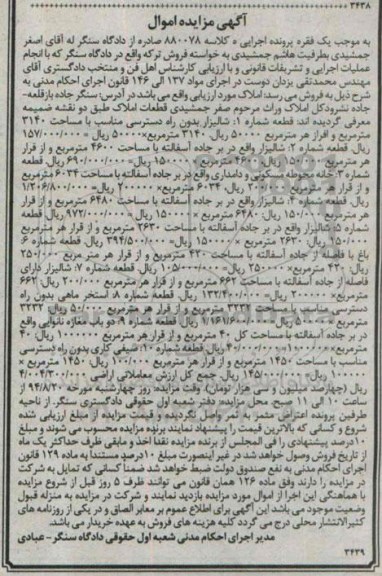 ۳۴۳۸
آگهی مزایده اموال
به موجب یک فقره پرونده اجرایی ه کلاسه ۸۸۰۰۷۸ صادره از دادگاه سنگر له آقای اصغر
جمشیدی بطرفیت هاشم جمشیدی به خواسته فروش ترکه واقع در دادگاه سنگر که با انجام
عملیات اجرایی و تشریفات قانونی و با ارزیابی کارشناس اهل فن و منتخب دادگستری آقای
مهندس محمدتقی یزدان دوست در اجرای مواد ۱۳۷ الی ۱۴۶ قانون اجرای احکام مدنی به
شرح ذیل به فروش می رسد: املاک مورد ارزیابی واقع می باشد در آدرس: سنگر جاده بازقلعه-
جاده نشرودکل املاک وراث مرحوم صفر جمشیدی قطعات املاک طبق دو نقشه ضمیمه
معرفی گردیده اند: قطعه شماره ۱: شالیزار بدون راه دسترسی مناسب با مساحت ۳۱۴۰
مترمربع و افراز هر مترمربع ۵۰۰۰۰ ریال. ۳۱۴۰ مترمربع×۵۰۰۰۰ ریال = ۱۵۷/۰۰۰/۰۰۰
ریال. قطعه شماره ۲: شالیزار واقع در بر جاده آسفالته با مساحت ۴۶۰۰ مترمربع و از قرار
هر مترمربع ریال. ۴۶۰۰ مترمربع × ۱۵۰۰۰۰ ریال= ۶۹۰/۰۰۰/۰۰۰ ریال. قطعه شماره
۳: خانه محوطه مسکونی و دامداری واقع در بر جاده آسفالته با مساحت ۶۰۳۴ مترمربع
و از قرار هر مترمربع ریال. ۶۰۳۴ مترمربع× ۲۰۰۰۰۰ ریال= ۱/۲۰۶/۸۰۰/۰۰۰
ریال. قطعه شماره ۴: شالیزار واقع در بر جاده آسفالته با مساحت ۶۴۸۰ مترمربع و از قرار
هر مترمربع ۱۵۰/۰۰۰ ریال: ۶۴۸۰ مترمربع × ۱۵۰۰۰۰ ریال= ۹۷۲/۰۰۰/۰۰۰ ریال. قطعه
شماره ۵: شالیزار واقع در بر جاده آسفالته با مساحت ۲۶۳۰ مترمربع و از قرار هر مترمربع
۱۵۰/۰۰۰ ریال. ۲۶۳۰ مترمربع × ۱۵۰۰۰۰ ریال= ۳۹۴/۵۰۰/۰۰۰ ریال. قطعه شماره ۶:
باغ با فاصله از جاده آسفالته با مساحت ۴۲۰ مترمربع و از قرار هر متر مربع ۲۵۰/۰۰۰
ریال. ۴۲۰ مترمربع× ۲۵۰۰۰۰ ریال= ۱۰۵/۰۰۰/۰۰۰ ریال. قطعه شماره ۷: شالیزار دارای
فاصله از جاده آسفالته با مساحت ۶۶۲ مترمربع و از قرار هر مترمربع ۲۰۰/۰۰۰ ریال: ۶۶۲
مترمربع× ۲۰۰۰۰۰ ریال= ۱۳۲/۴۰۰/۰۰۰ ریال. قطعه شماره ۸: استخر ماهی بدون راه
دسترسی مناسب با مساحت ۳۲۳۲ مترمربع و از قرار هر مترمربع ۵۰/۰۰۰ ریال ۳۲۳۲
مترمربع × ۵۰۰۰۰ ریال= ۱۶۱/۶۰۰/۰۰۰ ریال. قطعه شماره ۹: دو باب مغازه نانوایی واقع
در بر جاده آسفالته با مساحت کل ۴۰ مترمربع و از قرار هر مترمربع ۱۰۰۰۰۰۰ ریال ۴۰
مترمربع ریال. قطعه شماره ۱۰: صیفی کاری بدون راه دسترسی
مناسب با مساحت ۱۴۵۰ مترمربع و از قرار هر مترمربع ۱۰۰/۰۰۰ ریال. ۱۴۵۰ مترمربع ×
۱۰۰۰۰۰ ریال= ۱۴۵/۰۰۰/۰۰۰ ریال. جمع کل ارزش معاملاتی اراضی: ۴/۰۰۴/۳۰۰/۰۰۰
ریال (چهارصد میلیون و سی هزار تومان) وقت مزایده: روز چهارشنبه مورخه ۹۴/۸/۲۰ از
ساعت ۱۰ الی ۱۱ صبح محل مزایده: دفتر شعبه اول حقوقی دادگستری سنگر. از ناحیه
طرفین پرونده اعتراض مثمر به ثمر واصل نگردیده و قیمت مزایده از مبلغ ارزیابی شده
شروع و کسانی که بالاترین قیمت را پیشنهاد نمایند برنده مزایده محسوب می شوند و مبلغ
۱۰درصد پیشنهادی را فی المجلس از برنده مزایده نقدا اخذ و مابقی ظرف حداکثر یک ماه
از تاریخ فروش وصول خواهد شد در غیر اینصورت مبلغ ۱۰درصد مستندا به ماده ۱۲۹ قانون
اجرای احکام مدنی به نفع صندوق دولت ضبط خواهد شد ضمنا کسانی که تمایل به شرکت
در مزایده را دارند وفق ماده ۱۲۶ همان قانون می توانند ظرف ۵ روز قبل از شروع مزایده
با هماهنگی این اجرا از اموال مورد مزایده بازدید نمایند و شرکت در مزایده به منزله قبول
وضعیت موجود می باشد این آگهی برای اطلاع عموم بر معابر الصاق و در یکی از روزنامه های
کثیرالانتشار محلی درج می گردد کلیه هزینه های فروش به عهده خریدار می باشد.
مدیر اجرای احکام مدنی شعبه اول حقوقی دادگاه سنگر- عبادی
۳۴۳۹